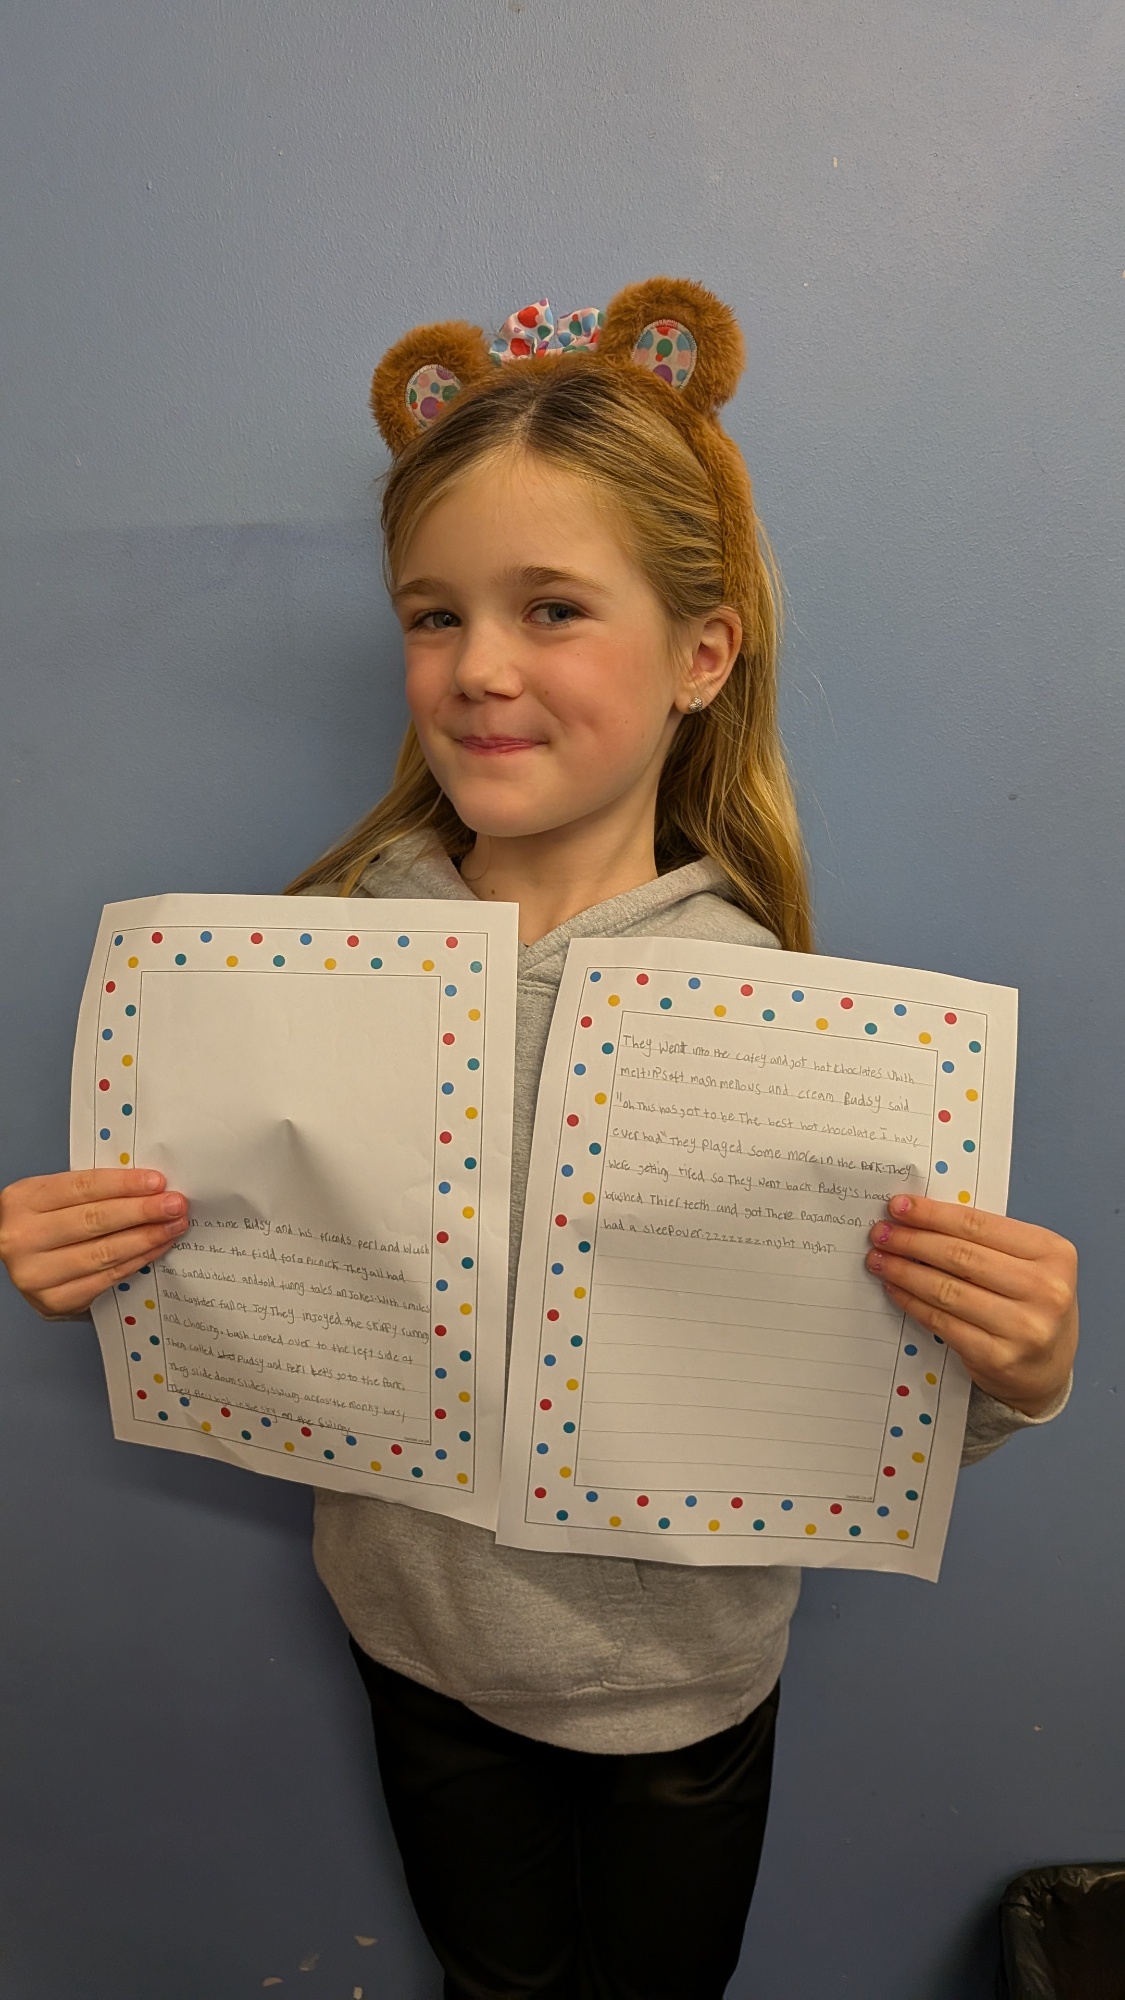 in a time Pudsy and his friends perl and blush
went to the the field for a Picnick They all had
Jam Sandwitches and told funny tales an Jokes. With smiles
and laughter full of Joy They injoyed the skippy running
and chasing. bash Looked over to the left side at
Then called Pudsy and Perl Let's go to the Park.
They slide down slides, swung across the monky bars,
They in the sky on the Swing
They Went into the cafey and got hot choclates Whith
melting soft mashmellows and cream Pudsy said
"oh This has got to be The best hot chocolate I have
ever had" They Played some more in the Park. They
were getting tired so They went back Pudsy's hous
brushed Thier teeth and got There Pajamas on a
had a sleepover. zzzzzzz. night night.